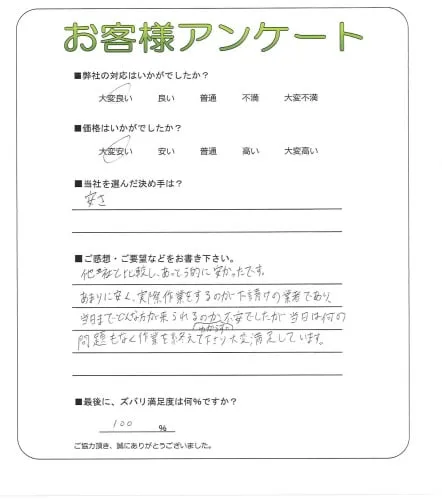 お客様アンケート
■弊社の対応はいかがでしたか？
大変良い 良い 普通 不満 大変不満
■価格はいかがでしたか？
大変安い 安い 普通 高い 大変高い
■当社を選んだ決め手は？
安さ
■ご感想・ご要望などをお書き下さい。
他社と比較し、あっとう的に安かったです。
あまりに安く、実際作業をするのが下請けの業者であり、
当日までどんな方が来られるのか、不安でしたが当日は何の
問題もなく作業を終えて下さり大変満足しています。
■最後に、ズバリ満足度は何％ですか？
100 ％
ご協力頂き、誠にありがとうございました。